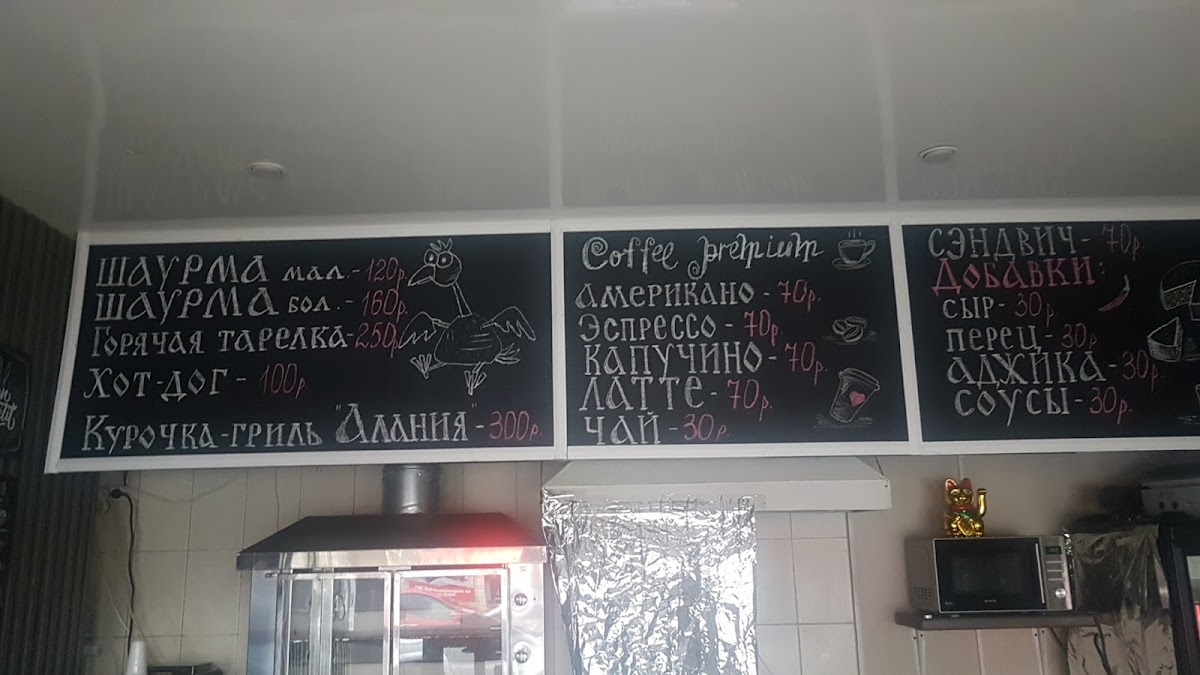 ШАУРМА мал. - 120р.
ШАУРМА бол. - 160р.
Горячая тарелка - 250р
Хот-дог - 100р.
Курочка-гриль "Алания" - 300р.
Coffee premium
Американо - 70р.
Эспрессо - 70р.
Капучино - 70р.
Латте - 70р.
Чай - 30р.
Сэндвич - 70р.
Добавки:
Сыр - 30р.
Перец - 30р
Аджика - 30р.
Соусы - 30р.